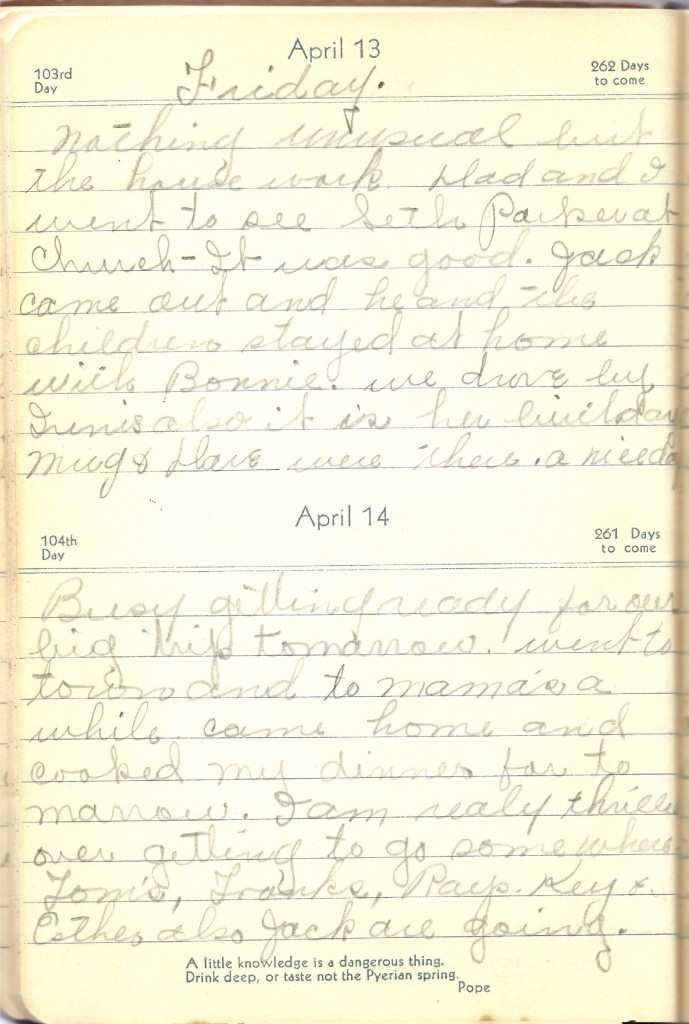 April 13
103rd
Day
262 Days
to come
Friday.
Nothing unusual but
the house work. Dad and I
went to see Seth Parker at
Church - It was good. Jack
came out and he and the
children stayed at home
with Bonnie. we drove by
also it is her birthday
Mug & Dave were there. a nice
April 14
104th
Day
261 Days
to come
Busy getting ready for our
big trip tomarrow. went to
town and to mama's a
while. came home and
cooked my dinner for to
marrow. I am realy thrilled
over getting to go some where
Tom's, Franks, Rays. Key &
Esther also Jack are going.
A little knowledge is a dangerous thing.
Drink deep, or taste not the Pyerian spring.
Pope